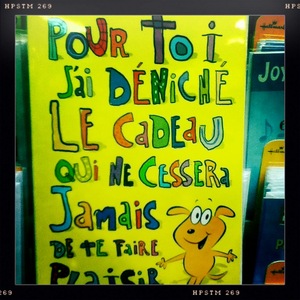 HPSTM 269
POUR Toi
J'ai DÉNICHÉ
LE CaDEAU
QUi NE CESSERA
JamaiS
DE TE FAIRE
PLaisiR
JOY
HPSTM 269